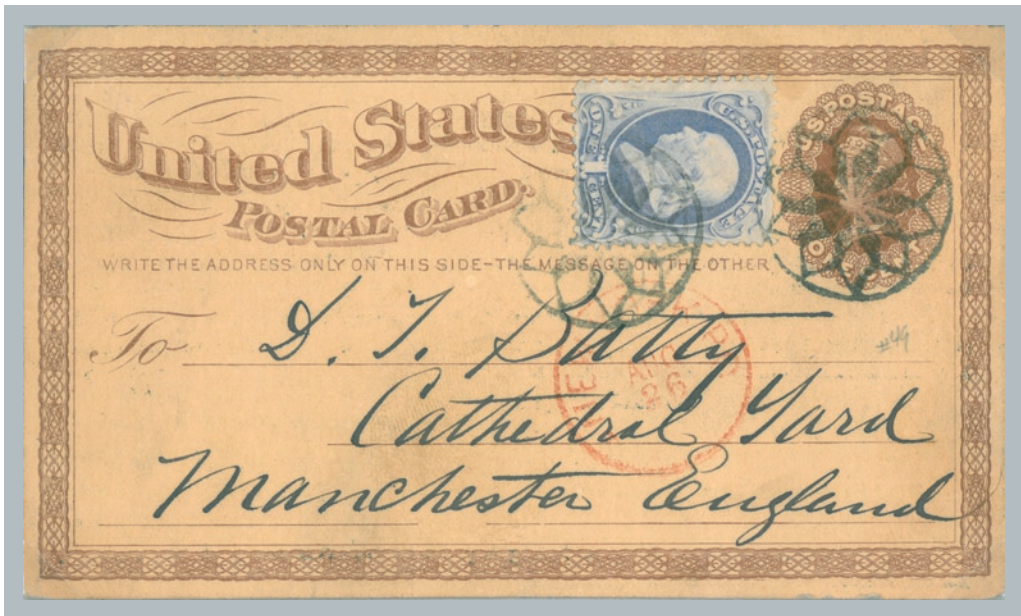 United States
POSTAL CARD.
WRITE THE ADDRESS ONLY ON THIS SIDE-THE MESSAGE ON THE OTHER
U.S. POSTAGE
ONE CENT
U.S. POSTAGE
To D. T. Batty
Cathedral Yard
Manchester England
NEW
AUG
26
#49